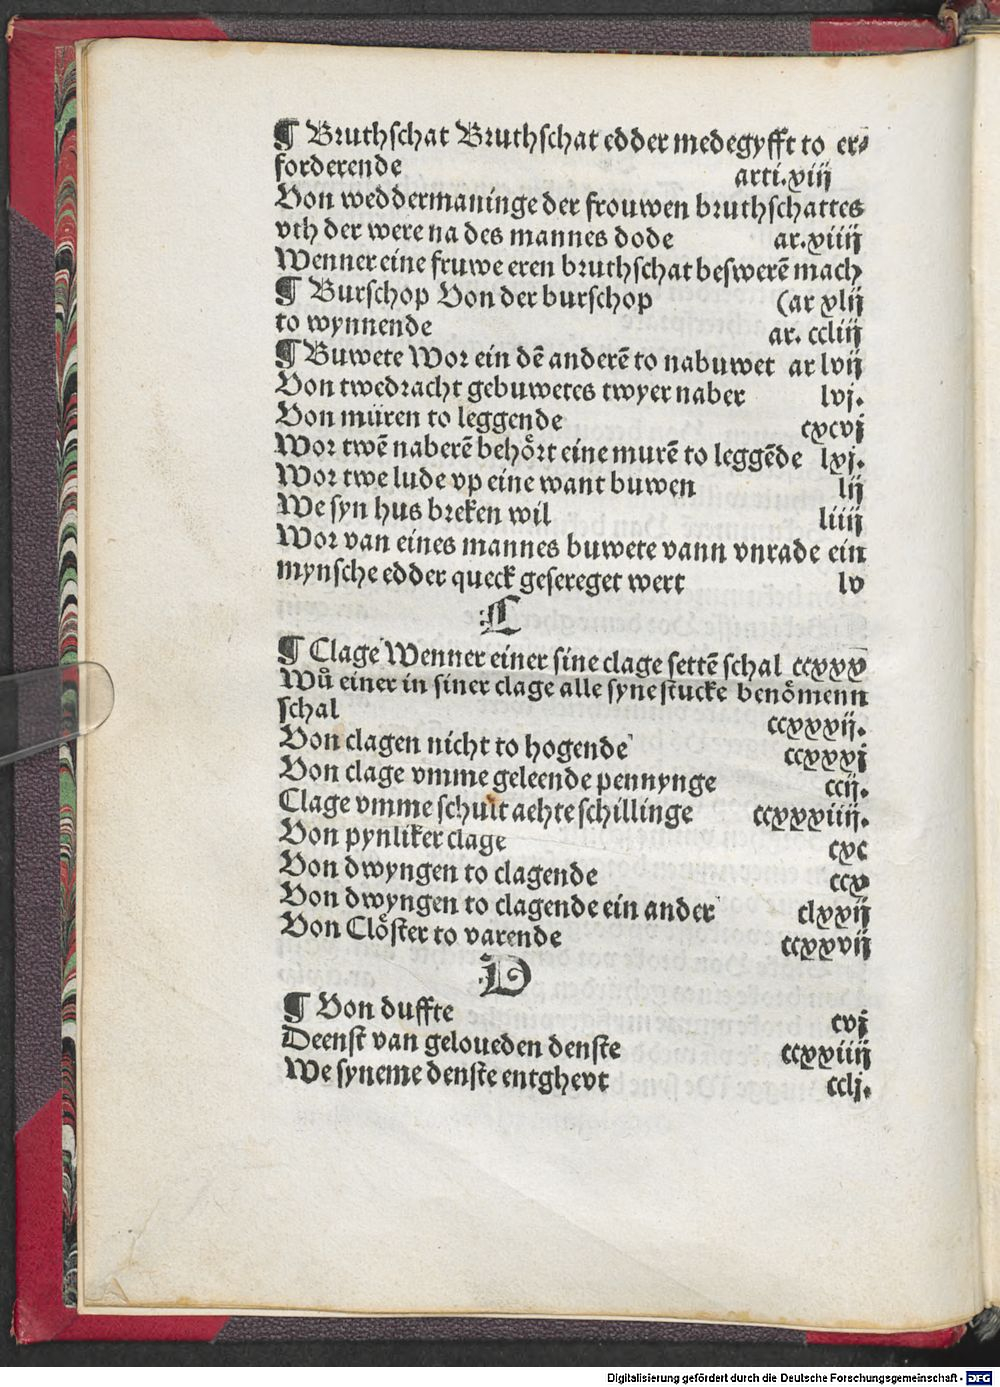 ¶ Bruthſchat Bruthſchat edder medegyfft to er⸗
forderende arti.xiij
Von weddermaninge der frouwen bruthſchattes
vth der were na des mannes dode ar.xiiij
Wenner eine fruwe eren bruthſchat beswerē mach
¶ Burſchop Von der burſchop (ar xlij
to wynnende ar. ccliij
¶ Buwete Wor ein dē anderē to nabuwet ar lvij
Von twedracht gebuwetes twyer naber lvj.
Von müren to leggende cxcvj
Wor twē naberē behöꝛt eine murē to leggēde lxj.
Wor twe lude vp eine want buwen lij
We ſyn hus breken wil liiij
Wor van eines mannes buwete vann vnrade ein
mynſche edder queck geſereget wert lv
C
¶ Clage Wenner einer ſine clage ſettē ſchal ccxxx
Wuͦ einer in ſiner clage alle ſyne ſtucke benömenn
ſchal ccxxxij.
Von clagen nicht to hogende ccxxxj
Von clage vmme geleende pennynge ccij.
Clage vmme ſchult aehte ſchillinge ccxxxiiij.
Von pynliker clage cxc
Von dwyngen to clagende ccx
Von dwyngen to clagende ein ander clxxij
Von Clöſter to varende ccxxvij
D
¶ Von duffte cvj
Deenſt van geloueden denſte ccxxiiij
We ſyneme denſte entghevt cclj.
Digitalisierung gefördert durch die Deutsche Forschungsgemeinschaft - DFG